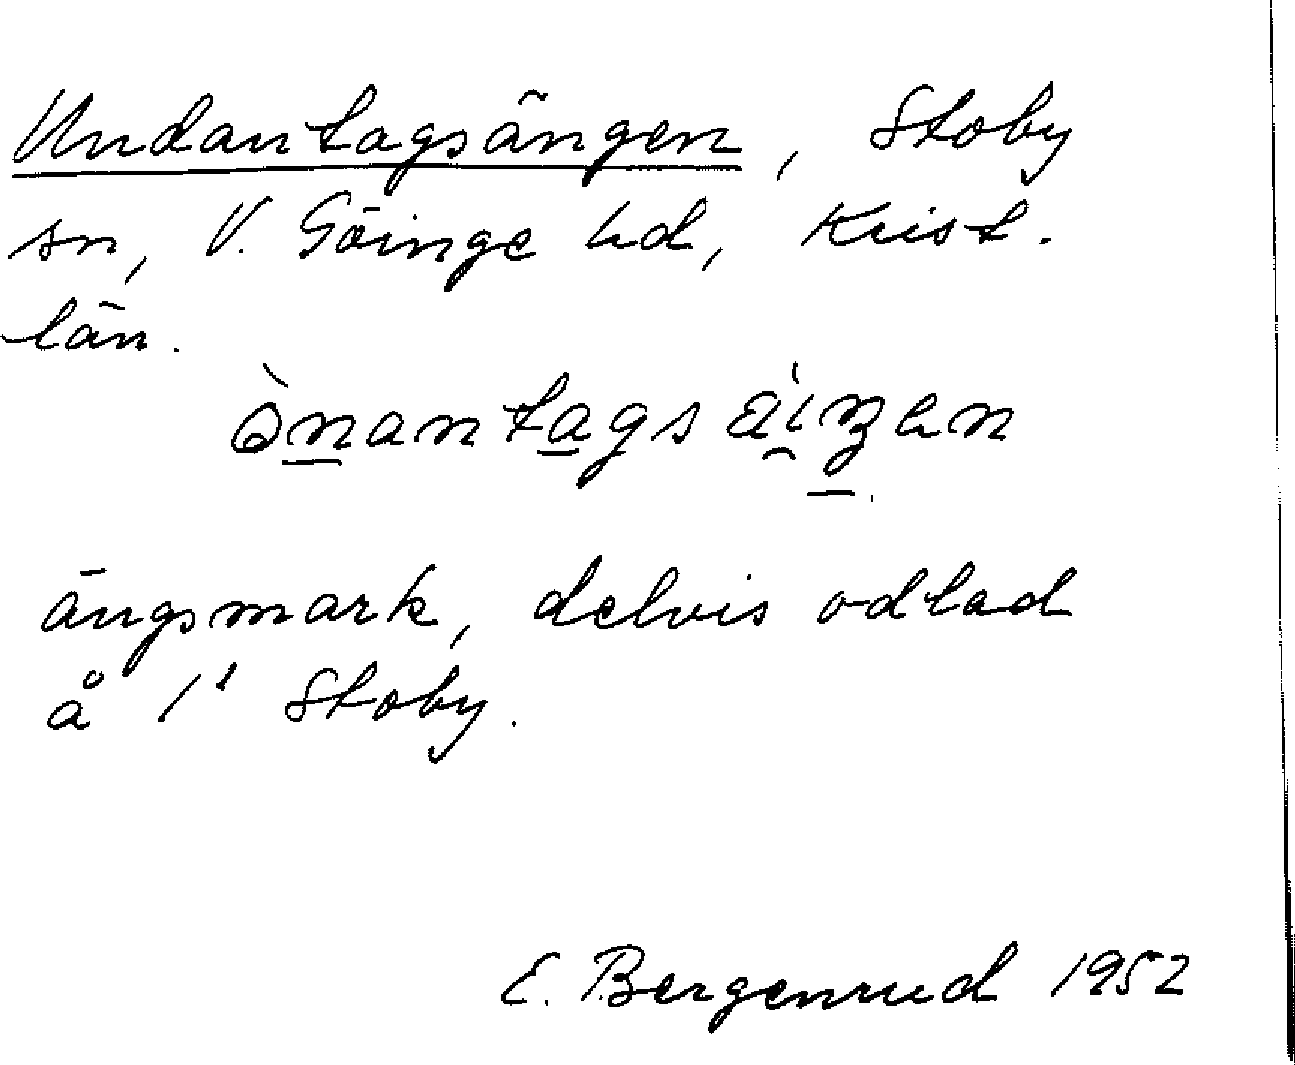 Undantagsängen, Stoby
sn, V. Göinge hd, Krist.
län.
ängsmark, delvis odlad
å 1¹ Stoby.
E. Bergenrud 1952